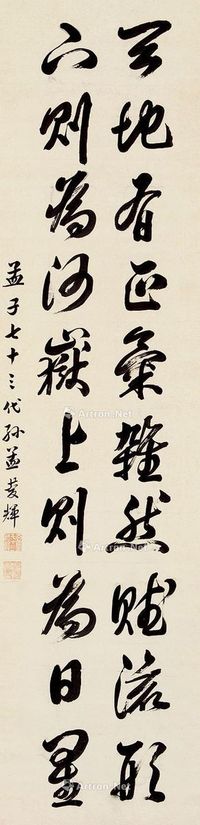 天地有正氣雜然賦流形
下則為河嶽上則為日星
孟子七十三代孫孟慶輝
Artron.Net
Artron.Net
Artron.Net